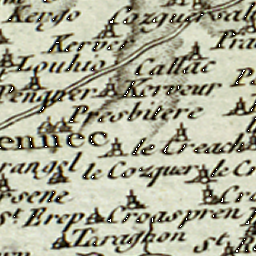 Kergo Cozquerval
Kerve
Louhio Callac
Penquer Kerveur
Presbitere
ennec
le Creach
rangel le Cozquer le Cr
rsene
St. Erep Croaspren
Taraghon St.